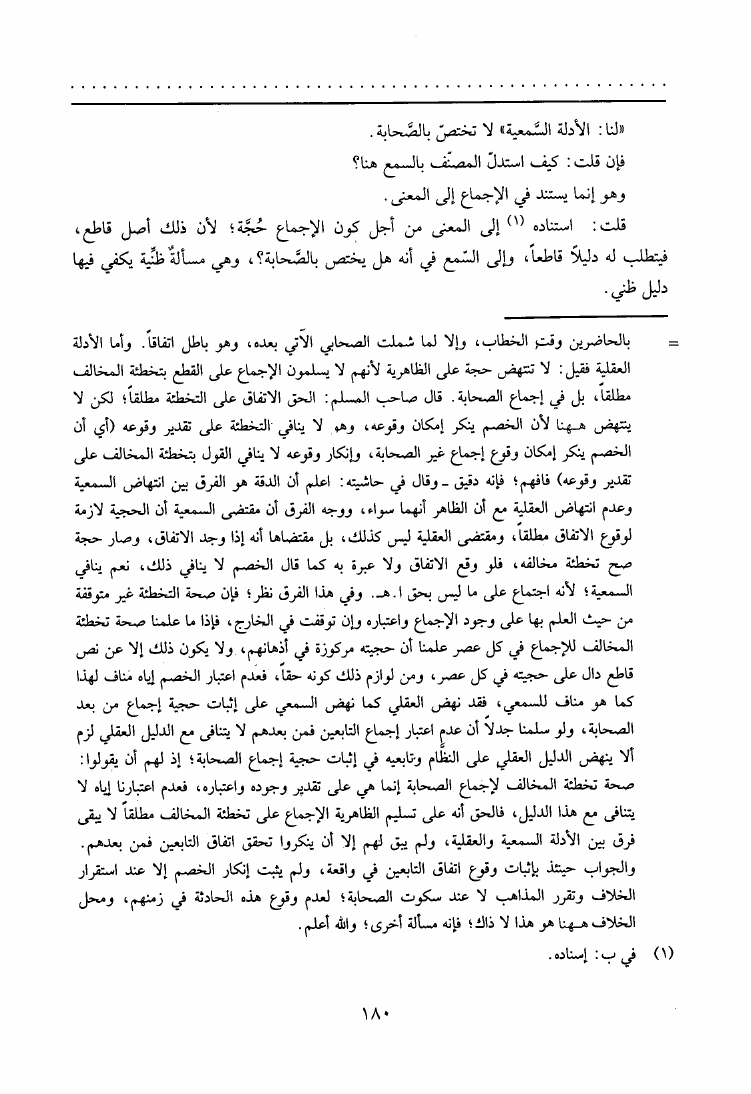 «لنا: الأدلة السَّمعية» لا تختصّ بالصَّحابة.
فإن قلت: كيف استدلّ المصنّف بالسمع هنا؟
وهو إنما يستند في الإجماع إلى المعنى.
قلت: استناده (١) إلى المعنى من أجل كون الإجماع حُجَّة؛ لأن ذلك أصل قاطع،
فيتطلب له دليلاً قاطعاً، وإلى السّمع في أنه هل يختص بالصَّحابة؟، وهي مسألةٌ ظنِّية يكفي فيها
دليل ظني.
= بالحاضرين وقت الخطاب، وإلا لما شملت الصحابي الآتي بعده، وهو باطل اتفاقاً. وأما الأدلة
العقلية فقيل: لا تنتهض حجة على الظاهرية لأنهم لا يسلمون الإجماع على القطع بتخطئة المخالف
مطلقاً، بل في إجماع الصحابة. قال صاحب المسلم: الحق الاتفاق على التخطئة مطلقاً؛ لكن لا
ينتهض هـهنا لأن الخصم ينكر إمكان وقوعه، وهو لا ينافي التخطئة على تقدير وقوعه (أي أن
الخصم ينكر إمكان وقوع إجماع غير الصحابة، وإنكار وقوعه لا ينافي القول بتخطئة المخالف على
تقدير وقوعه) فافهم؛ فإنه دقيق ـ وقال في حاشيته: اعلم أن الدقة هو الفرق بين انتهاض السمعية
وعدم انتهاض العقلية مع أن الظاهر أنهما سواء، ووجه الفرق أن مقتضى السمعية أن الحجية لازمة
لوقوع الاتفاق مطلقاً، ومقتضى العقلية ليس كذلك، بل مقتضاها أنه إذا وجد الاتفاق، وصار حجة
صح تخطئة مخالفه، فلو وقع الاتفاق ولا عبرة به كما قال الخصم لا ينافي ذلك، نعم ينافي
السمعية؛ لأنه اجتماع على ما ليس بحق ا.هـ. وفي هذا الفرق نظر؛ فإن صحة التخطئة غير متوقفة
من حيث العلم بها على وجود الإجماع واعتباره وإن توقفت في الخارج، فإذا ما علمنا صحة تخطئة
المخالف للإجماع في كل عصر علمنا أن حجيته مركوزة في أذهانهم، ولا يكون ذلك إلا عن نص
قاطع دال على حجيته في كل عصر، ومن لوازم ذلك كونه حقاً، فعدم اعتبار الخصم إياه مناف لهذا
كما هو مناف للسمعي، فقد نهض العقلي كما نهض السمعي على إثبات حجية إجماع من بعد
الصحابة، ولو سلمنا جدلاً أن عدم اعتبار إجماع التابعين فمن بعدهم لا يتنافى مع الدليل العقلي لزم
ألا ينهض الدليل العقلي على النظَّام وتابعيه في إثبات حجية إجماع الصحابة؛ إذ لهم أن يقولوا:
صحة تخطئة المخالف لإجماع الصحابة إنما هي على تقدير وجوده واعتباره، فعدم اعتبارنا إياه لا
يتنافى مع هذا الدليل، فالحق أنه على تسليم الظاهرية الإجماع على تخطئة المخالف مطلقاً لا يبقى
فرق بين الأدلة السمعية والعقلية، ولم يبق لهم إلا أن ينكروا تحقق اتفاق التابعين فمن بعدهم.
والجواب حينئذ بإثبات وقوع اتفاق التابعين في واقعة، ولم يثبت إنكار الخصم إلا عند استقرار
الخلاف وتقرر المذاهب لا عند سكوت الصحابة؛ لعدم وقوع هذه الحادثة في زمنهم، ومحل
الخلاف هـهنا هو هذا لا ذاك؛ فإنه مسألة أخرى؛ والله أعلم.
(١) في ب: إسناده.
١٨٠